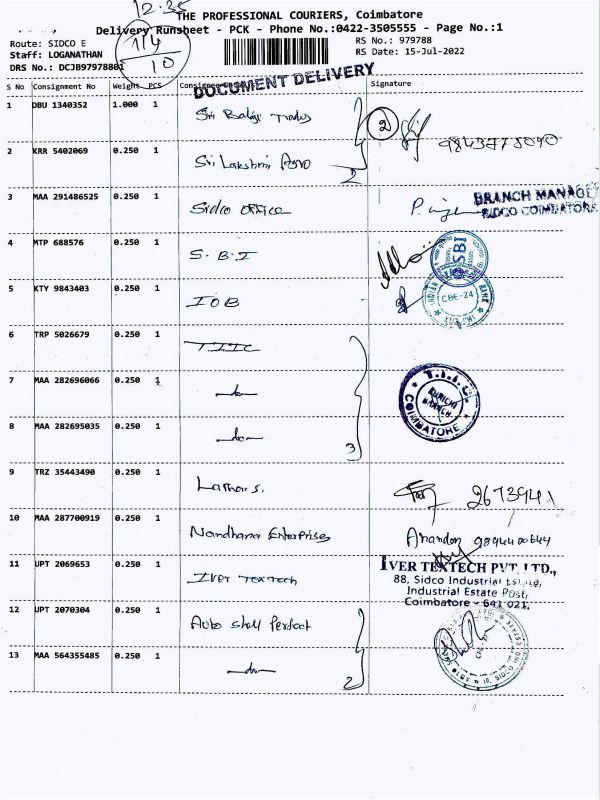 12.35
THE PROFESSIONAL COURIERS, Coimbatore
Delivery Runsheet - PCK - Phone No.:0422-3505555 - Page No.:1
Route: SIDCO E
RS No.: 979788
Staff: LOGANATHAN
RS Date: 15-Jul-2022
DRS No.: DCJB97978801
114
10
DOCUMENT DELIVERY
S No Consignment No Weight PCS Consignee Signature
1 DBU 1340352 1.000 1 Sri Balaji Traders 2
2 KRR 5402069 0.250 1 Sri Lakshmi Agro 2
3 MAA 291486525 0.250 1 Sidco office
BRANCH MANAGE
SIDCO COIMBATORE
4 MTP 688576 0.250 1 S.B.I
5 KTY 9843403 0.250 1 IOB
CBE-24
6 TRP 5026679 0.250 1 TIIC
7 MAA 282696066 0.250 1 -do-
T.I.I.C.
KURICHI
BRANCH
COIMBATORE
8 MAA 282695035 0.250 1 -do- 3
9 TRZ 35443490 0.250 1 2673941
10 MAA 287700919 0.250 1 Nandhana Enterprises Anandan
11 UPT 2069653 0.250 1 Iver Textech
IVER TEXTECH PVT. LTD.,
88, Sidco Industrial Estate,
Industrial Estate Post,
Coimbatore - 641 021.
12 UPT 2070304 0.250 1 Auto shell Perfect
13 MAA 564355485 0.250 1 -do- 2